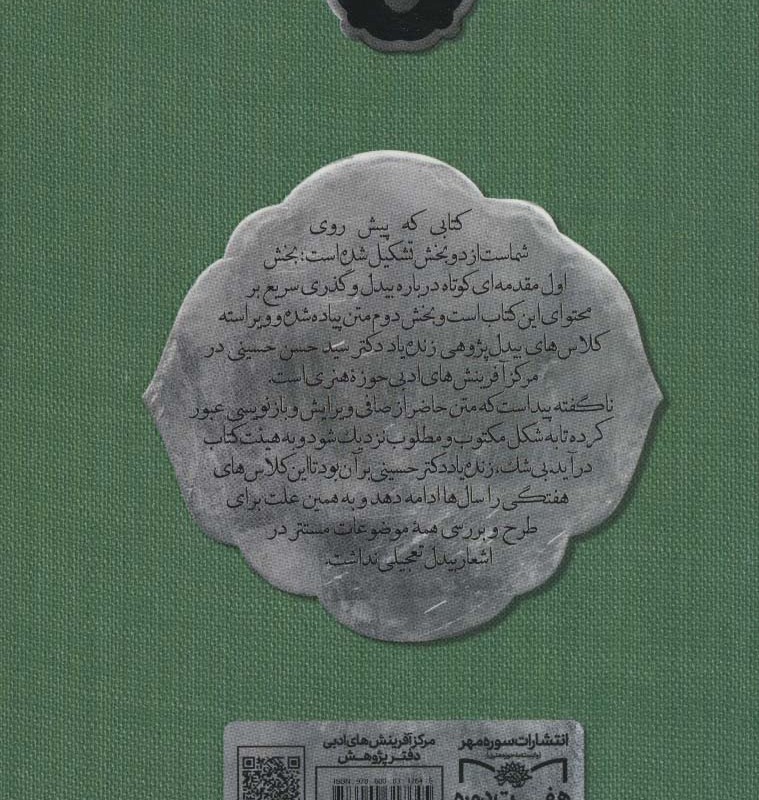 کتابی که پیش روی
شماست از دو بخش تشکیل شده است؛ بخش
اول مقدمه‌ای کوتاه درباره بیدل و گذری سریع بر
محتوای این کتاب است و بخش دوم متن پیاده شده و ویراسته
کلاس‌های بیدل‌پژوهی زنده‌یاد دکتر سید حسن حسینی در
مرکز آفرینش‌های ادبی حوزهٔ هنری است.
ناگفته پیداست که متن حاضر از صافی ویرایش و بازنویسی عبور
کرده تا به شکل مکتوب و مطلوب نزدیک شود و به هیئت کتاب
درآید. بی‌شک، زنده‌یاد دکتر حسینی بر آن بود تا این کلاس‌های
هفتگی را سال‌ها ادامه دهد و به همین علت برای
طرح و بررسی همهٔ موضوعات مستتر در
اشعار بیدل تعجیلی نداشت.
انتشارات سوره مهر
مرکز آفرینش‌های ادبی
دفتر پژوهش